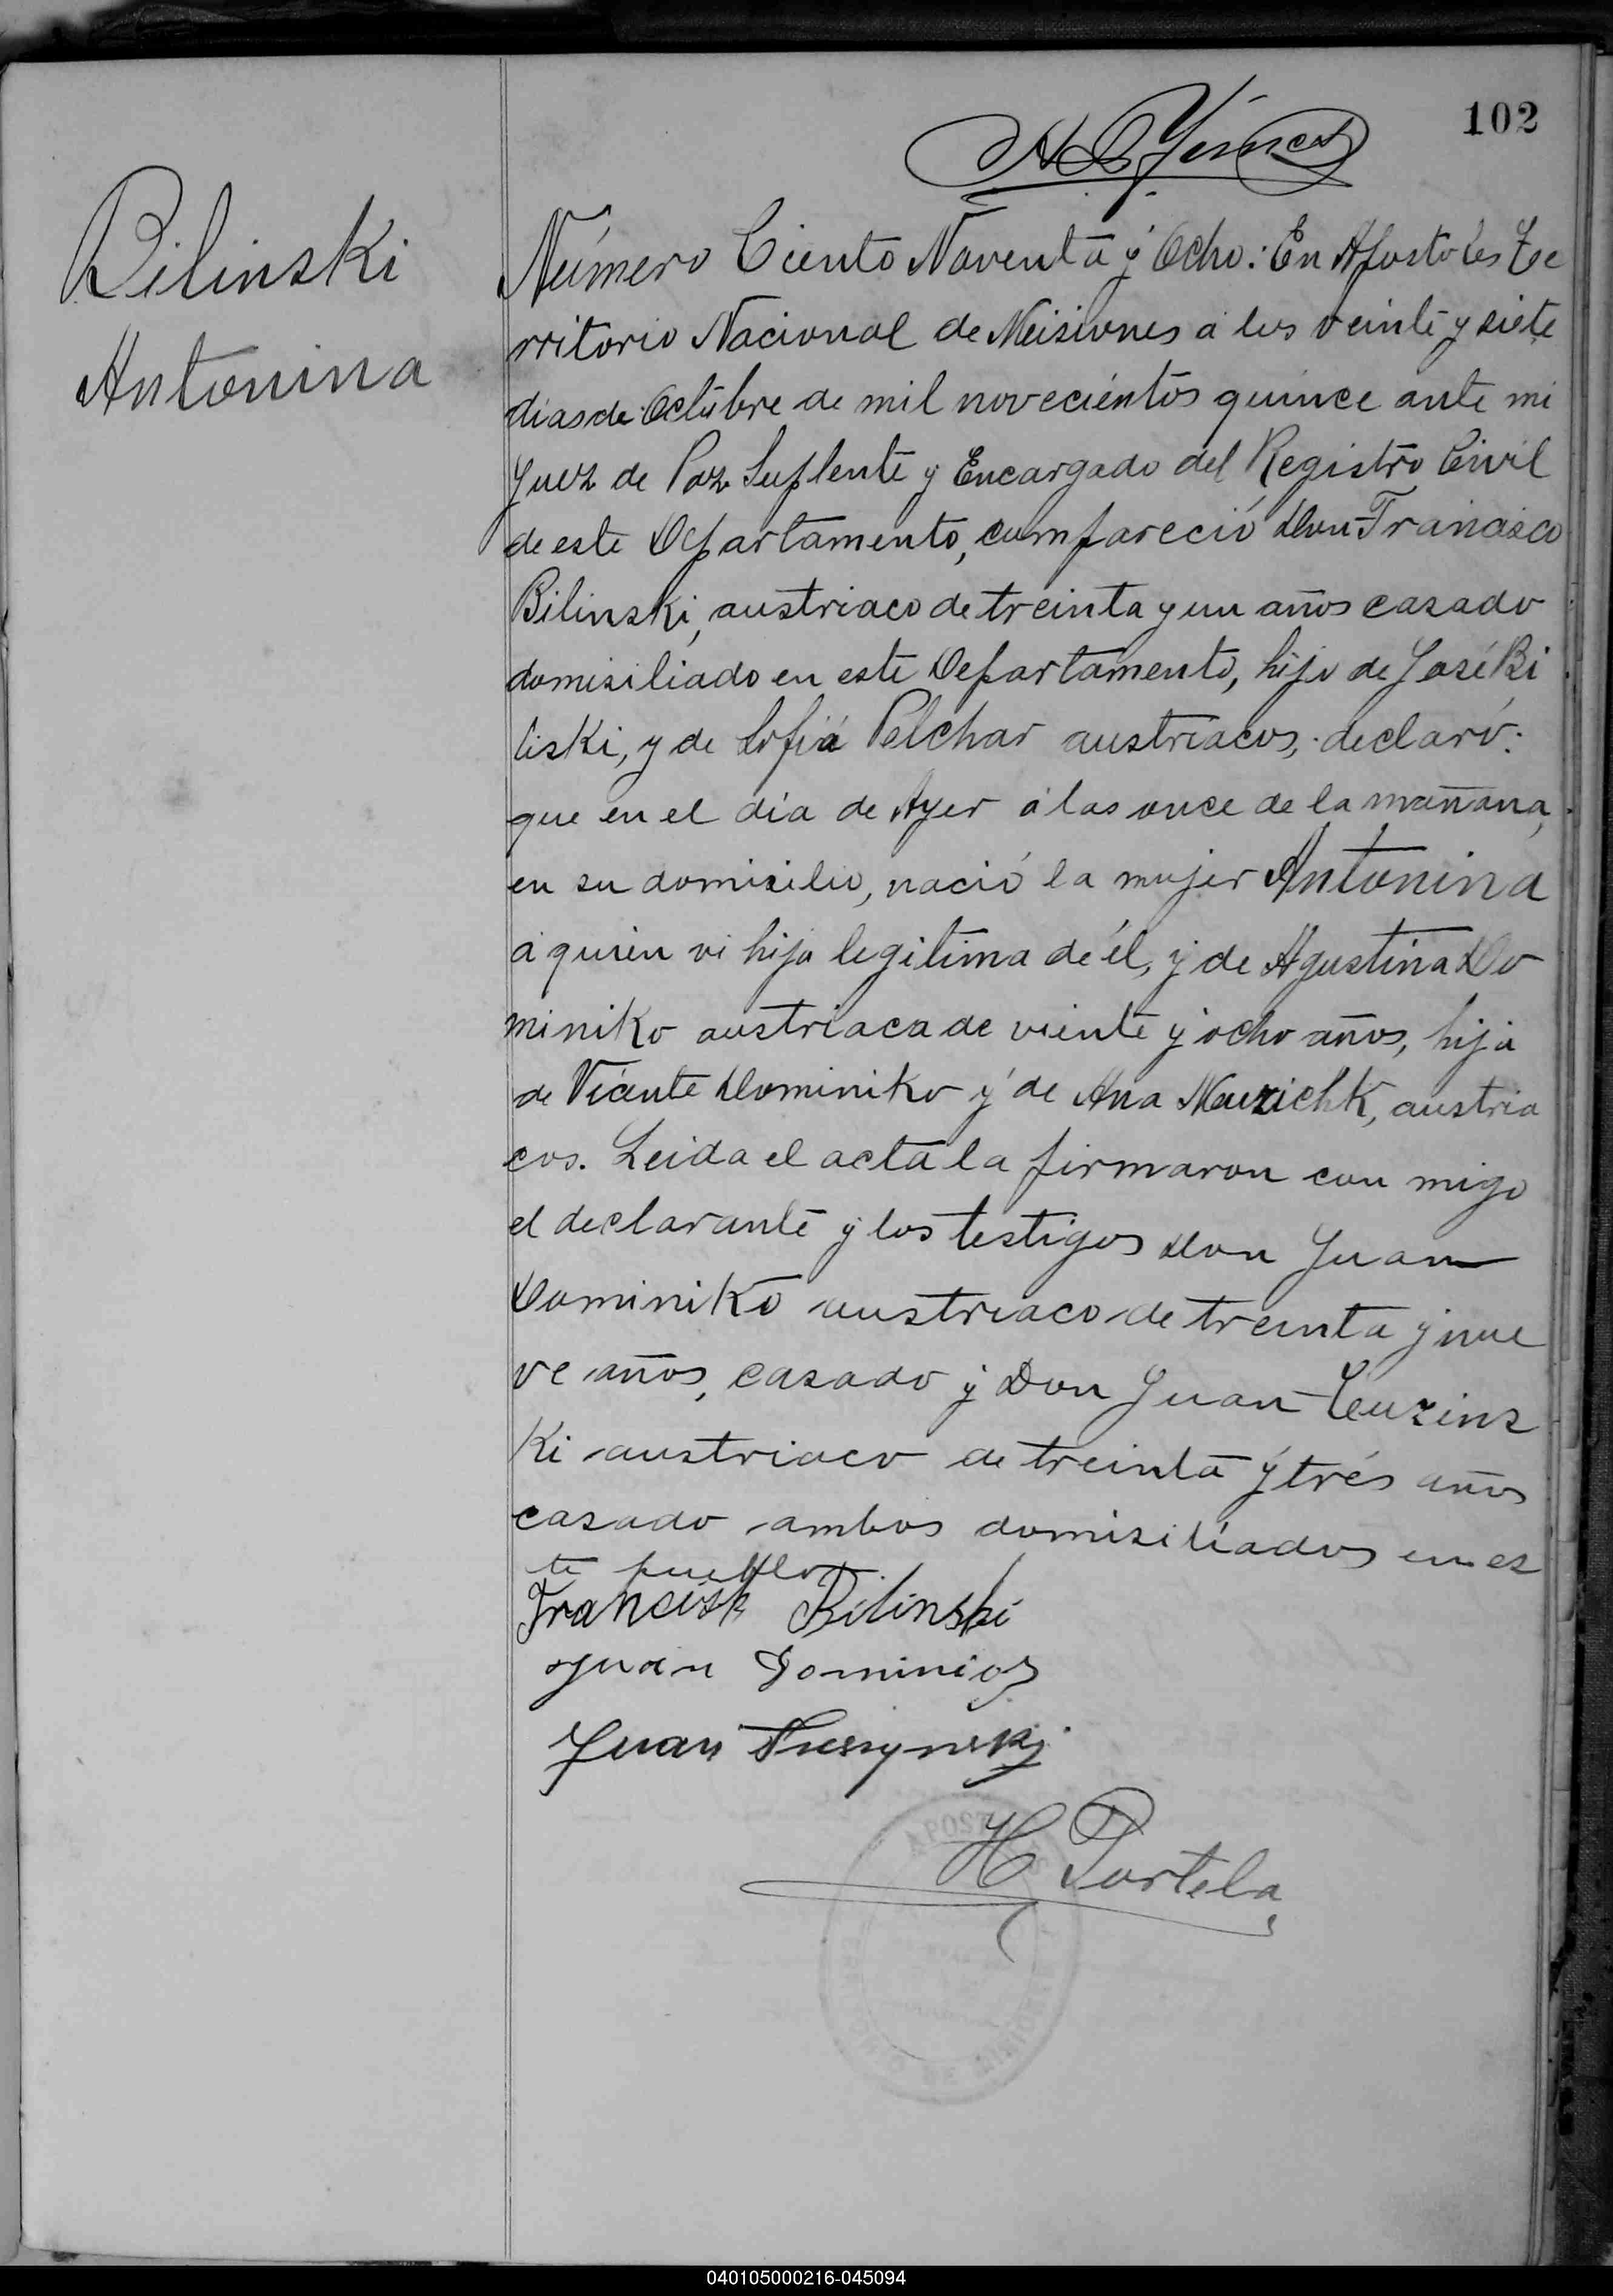 102
Bilinski
Antonina
Número Ciento Noventa y Ocho: En Apostoles Te
rritorio Nacional de Meisiones a los veinte y siete
dias de Octubre de mil novecientos quince ante mi
Juez de Paz Suplente y Encargado del Registro Civil
de este Departamento, compareció Don Francisco
Bilinski, austriaco de treinta y un años casado
domisiliado en este Departamento, hijo de José Bi
liski, y de Sofia Pelchar austriacos, declaró:
que en el dia de Ayer á las once de la mañana,
en su domisilio, nació la mujer Antonina
á quien vi hija legitima de él, y de Agustina Do
miniko austriaca de viente y ocho años, hija
de Vicente Dominiko y de Ana Mauzichk, austria
cos. Leida el acta la firmaron con migo
el declarante y los testigos Don Juan
Dominiko austriaco de treinta y nue
ve años, casado y Don Juan
Ki austriaco de treinta y trés años
casado ambos domisiliados en es
te pueblo.
Francisk Bilinski
Juan
Juan
H Portela
APOST
040105000216-045094